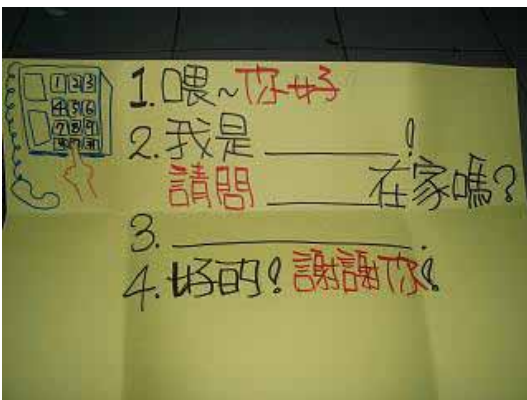 1 2 3
4 5 6
7 8 9
1. 喂~你好
2. 我是________!
請問________在家嗎?
3. ________________.
4. 好的!謝謝你!